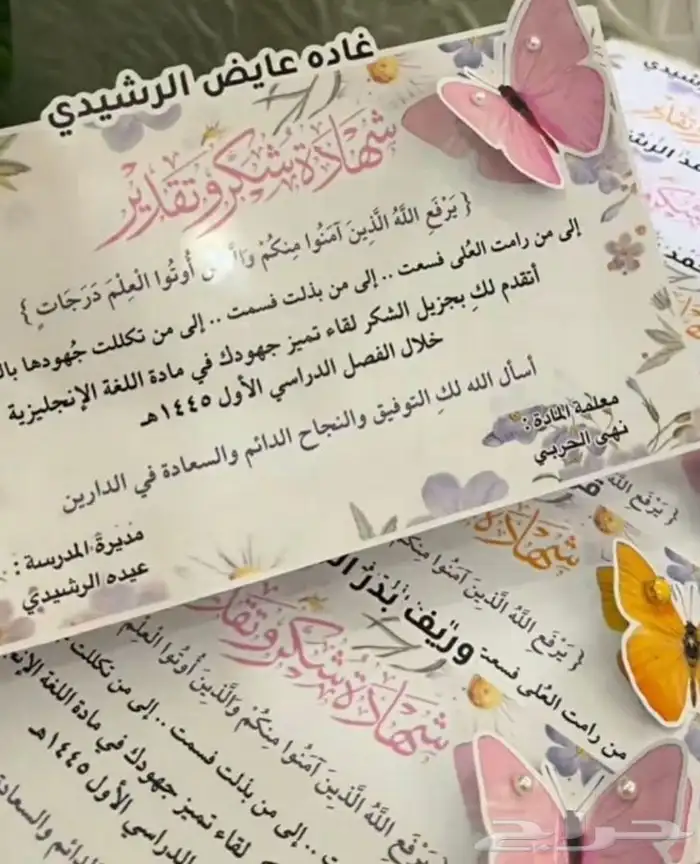 غاده عايض الرشيدي
شهادة شكر وتقدير
{ يَرْفَعِ اللَّهُ الَّذِينَ آمَنُوا مِنكُمْ أُوتُوا الْعِلْمَ دَرَجَاتٍ }
إلى من رامت العُلى فسعت .. إلى من بذلت فسمت .. إلى من تكللت جُهودها
أتقدم لكِ بجزيل الشكر لقاء تميز جهودك في مادة اللغة الإنجليزية
خلال الفصل الدراسي الأول ١٤٤٥هـ
أسأل الله لكِ التوفيق والنجاح الدائم والسعادة في الدارين
معلمة المادة :
نهى الحربي
مديرة المدرسة :
عيده الرشيدي
{ يَرْفَعِ اللَّهُ
شهادة
{ يَرْفَعِ اللَّهُ الَّذِينَ آمَنُوا مِنكُمْ
وريف بدر
من رامت العُلى فسعت
شهادة شكر وتقدير
يَرْفَعِ اللَّهُ الَّذِينَ آمَنُوا مِنكُمْ وَالَّذِينَ أُوتُوا الْعِلْمَ
.. إلى من بذلت فسمت .. إلى من تكللت
لقاء تميز جهودك في مادة اللغة
الدراسي الأول ١٤٤٥هـ
الدائم والسعادة
حراج